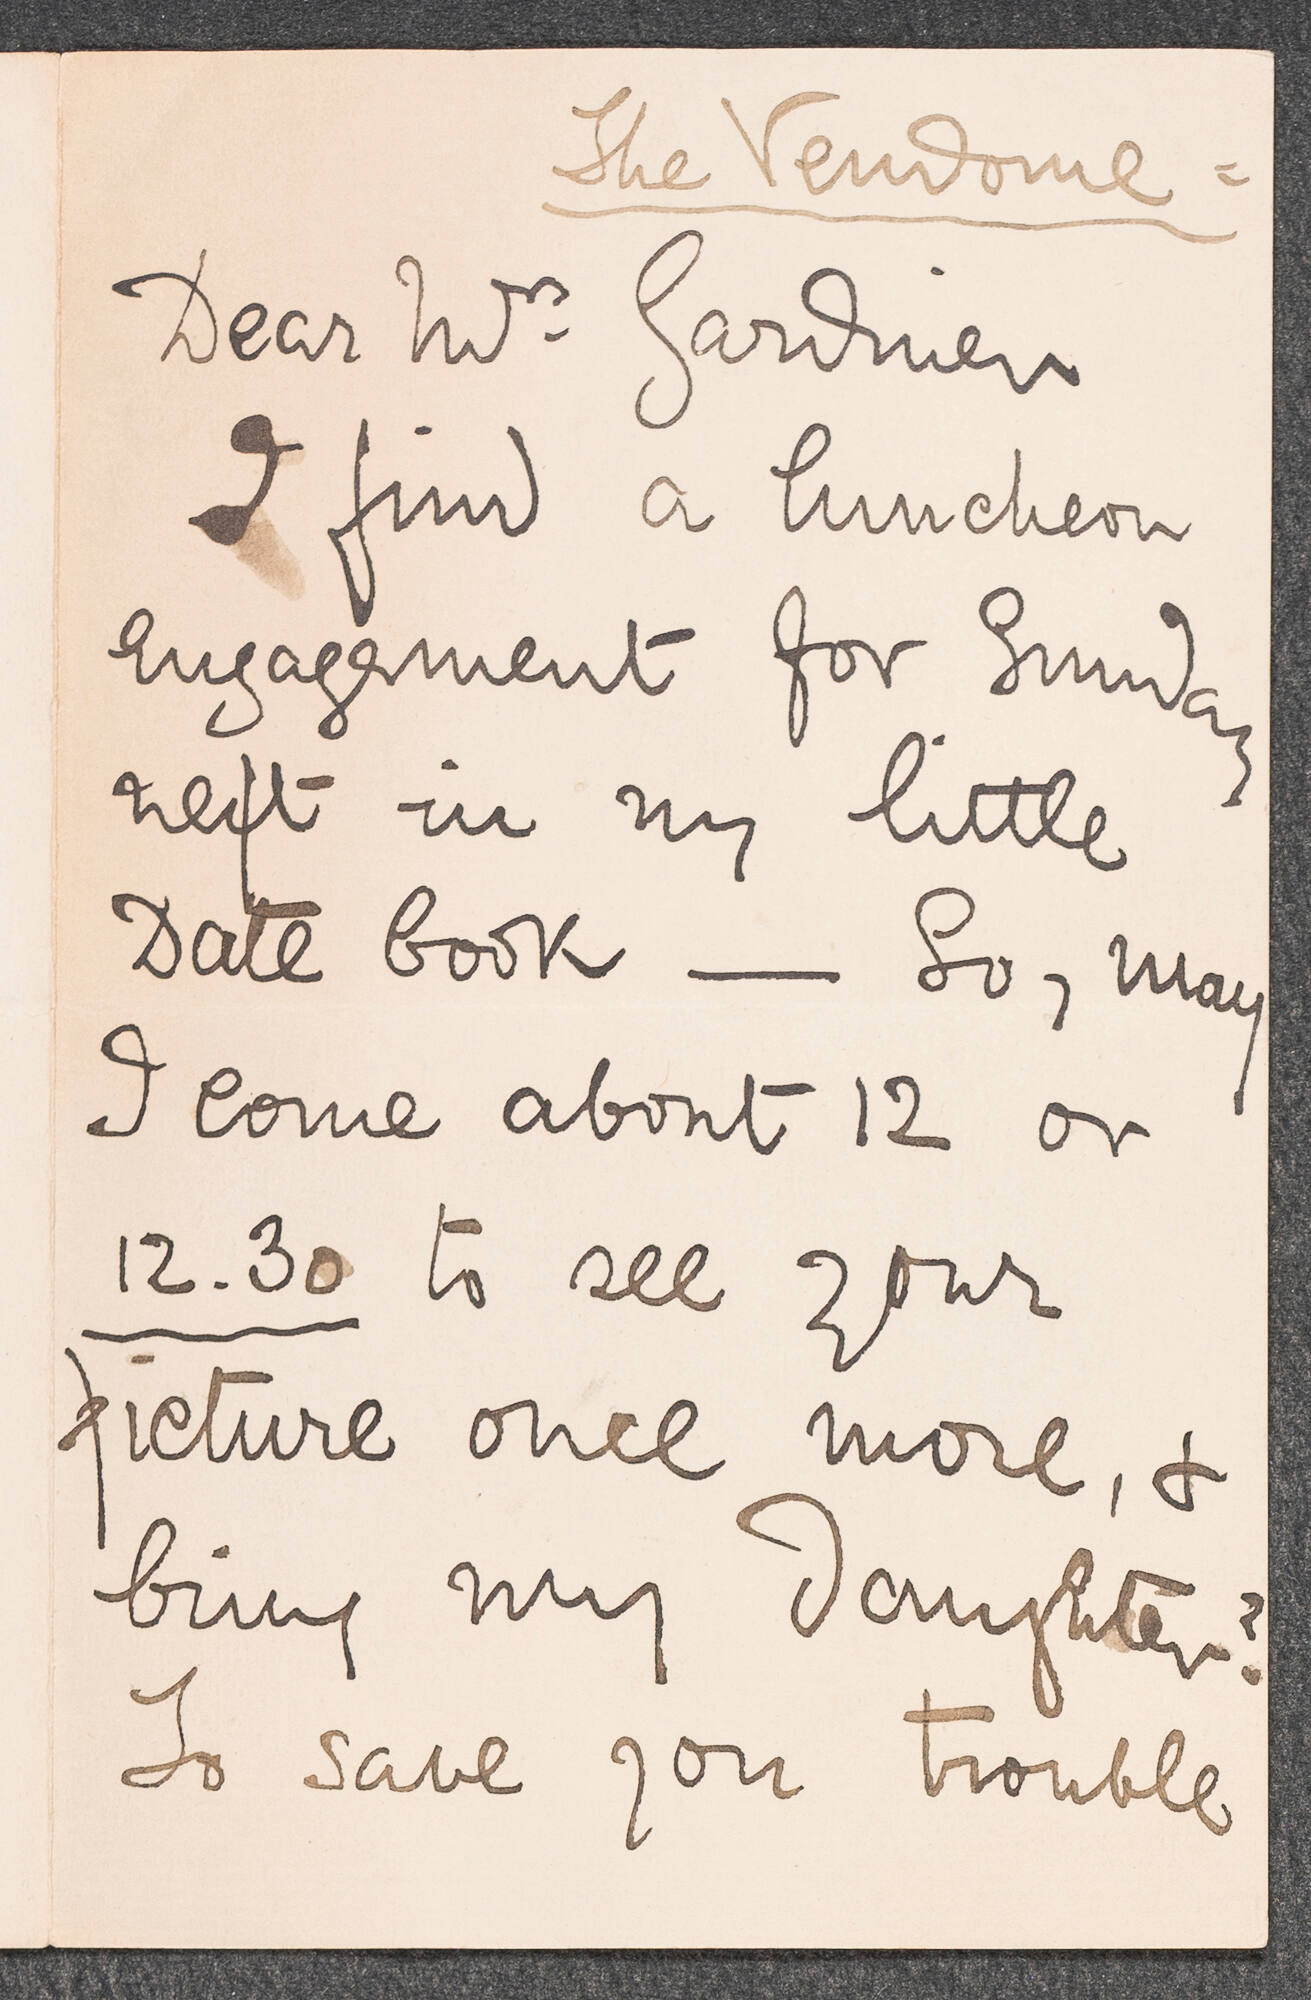 The Vendome =
Dear Mrs Gardner
I find a luncheon
engagement for Sunday
next in my little
Date book — So, may
I come about 12 or
12.30 to see your
picture once more, &
bring my Daughter?
To save you trouble